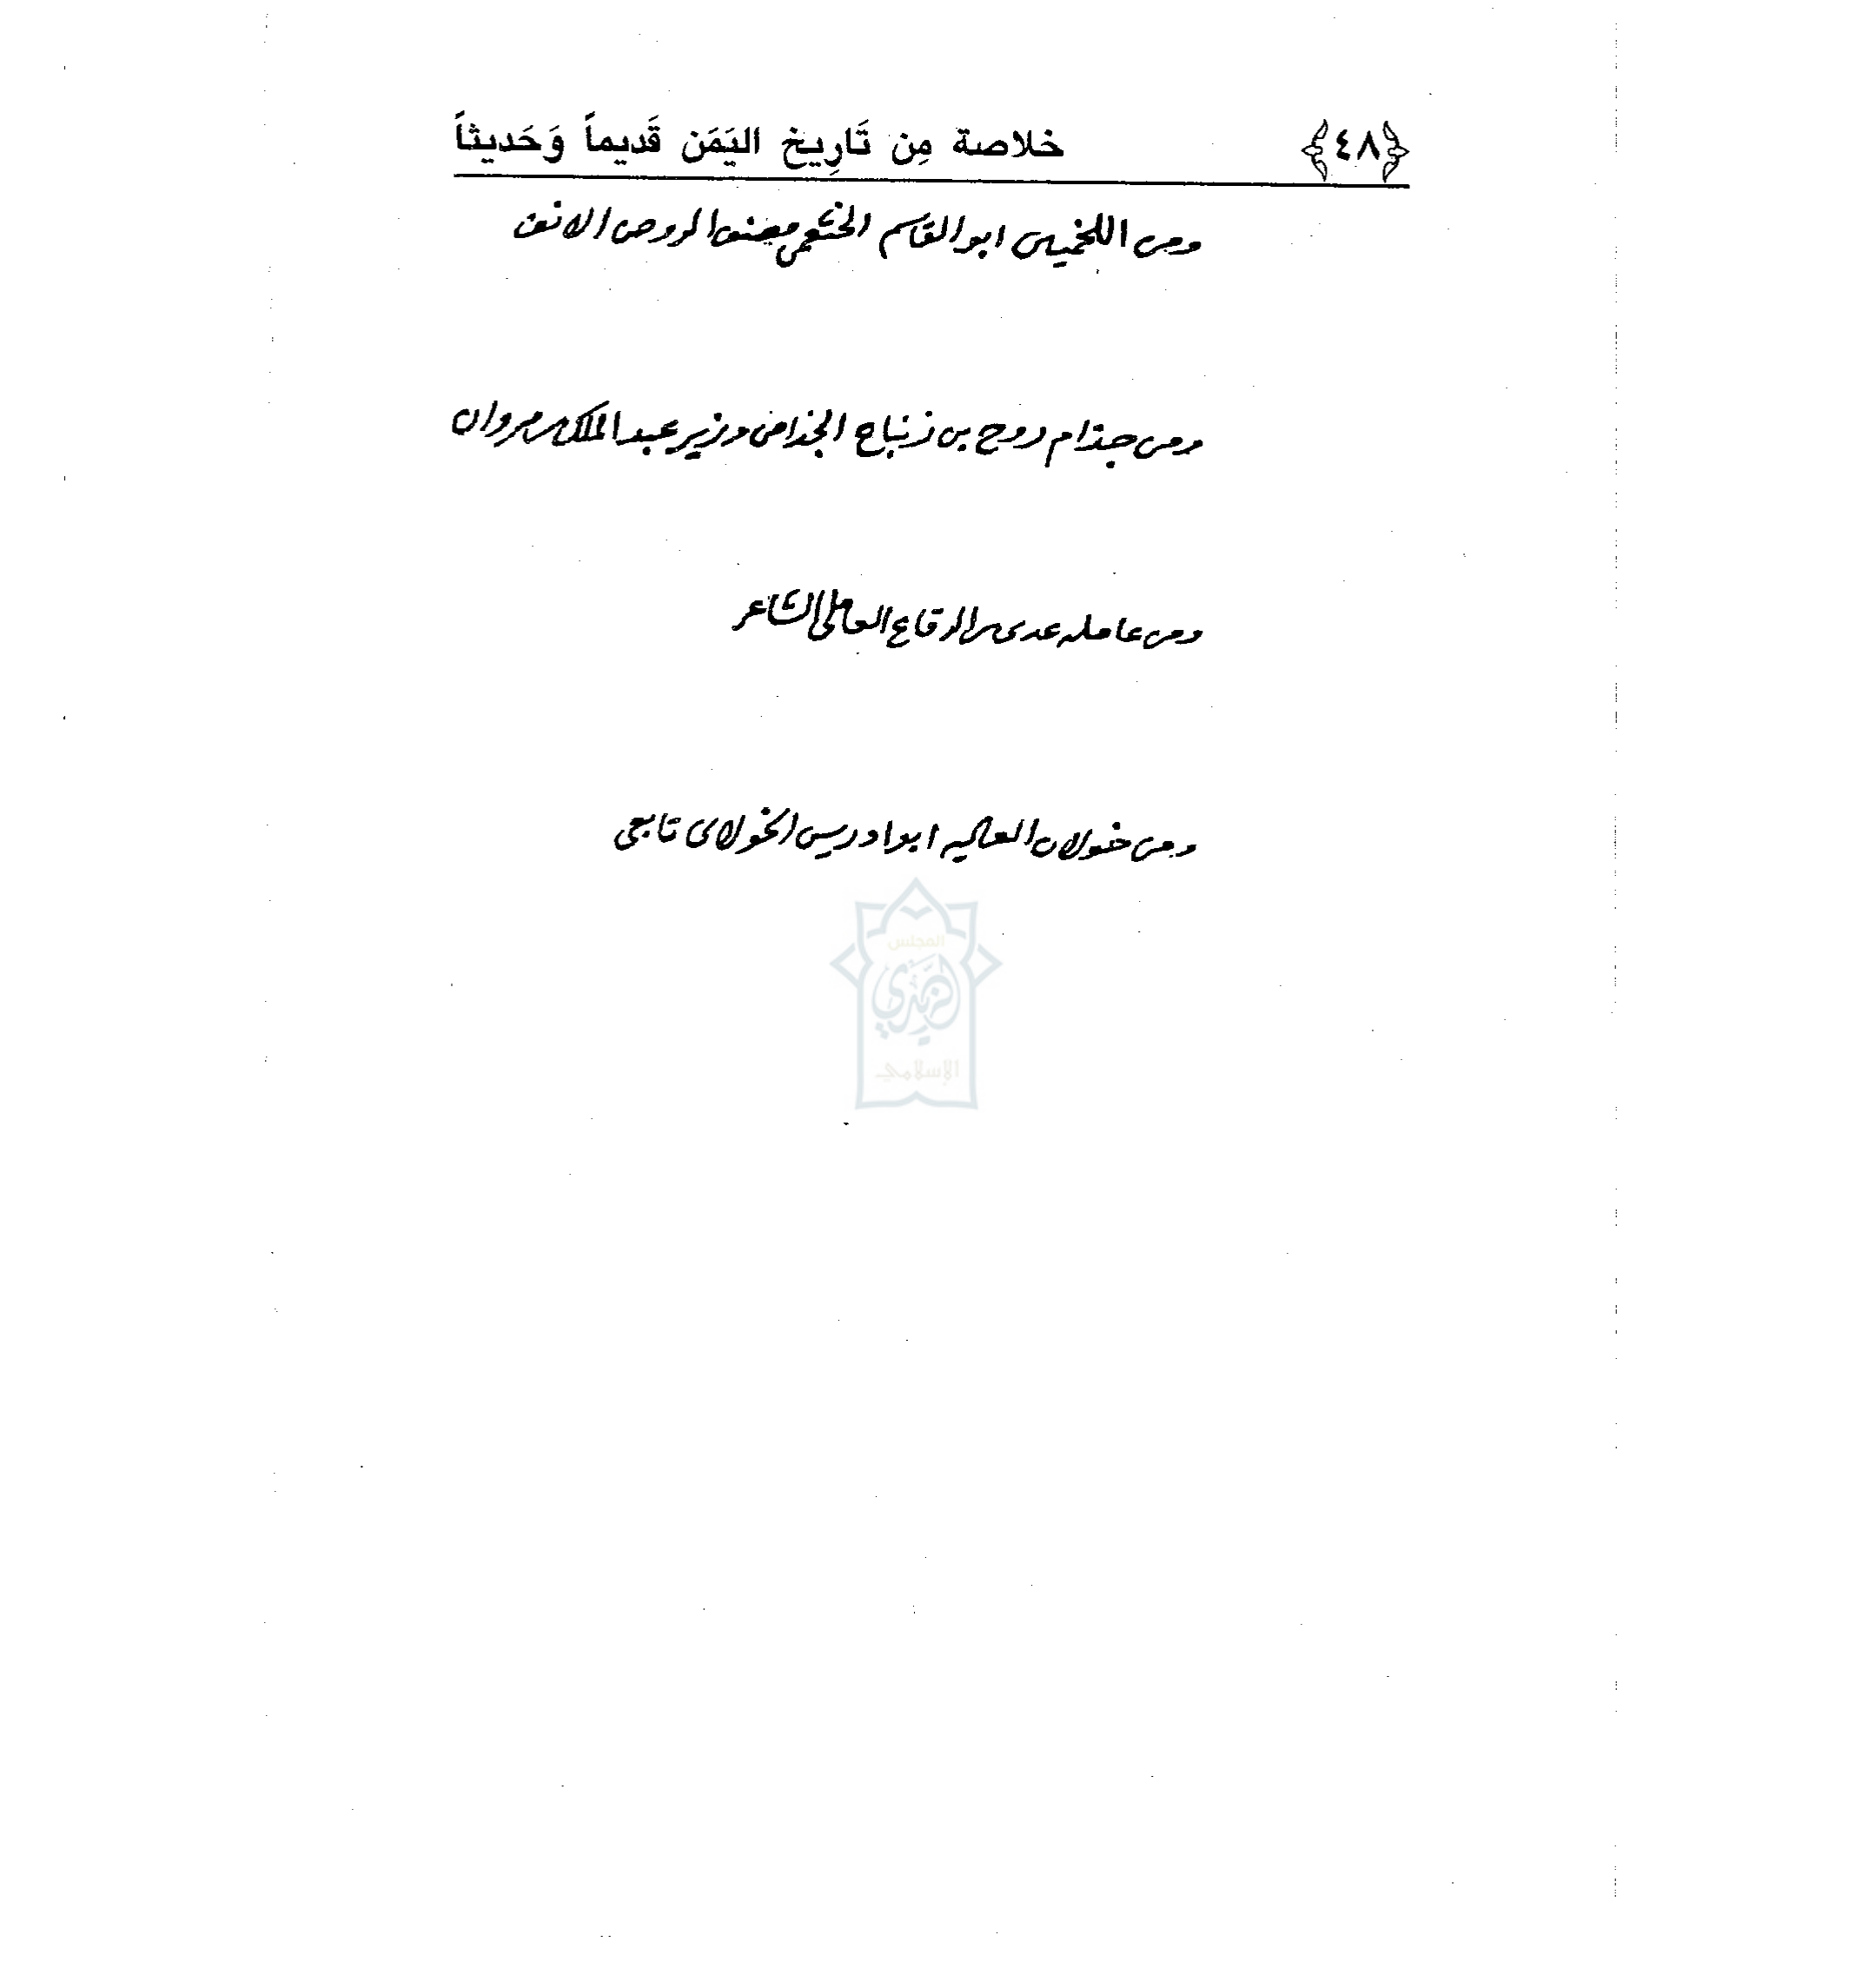 ﴿٤٨﴾ خلاصة مِن تَارِيخ اليَمَن قَديماً وَحَديثاً
ومن اللخميين ابو القاسم الخثعمي مصنف الروض الانف
ومن جذام روح بن زنباع الجذامي وزير عبد الملك بن مروان
ومن عامله عدي بن الرقاع العاملي الشاعر
ومن خولان العاليه ابو ادريس الخولاني تابعي
المجلس
الزيدي
الإسلامي